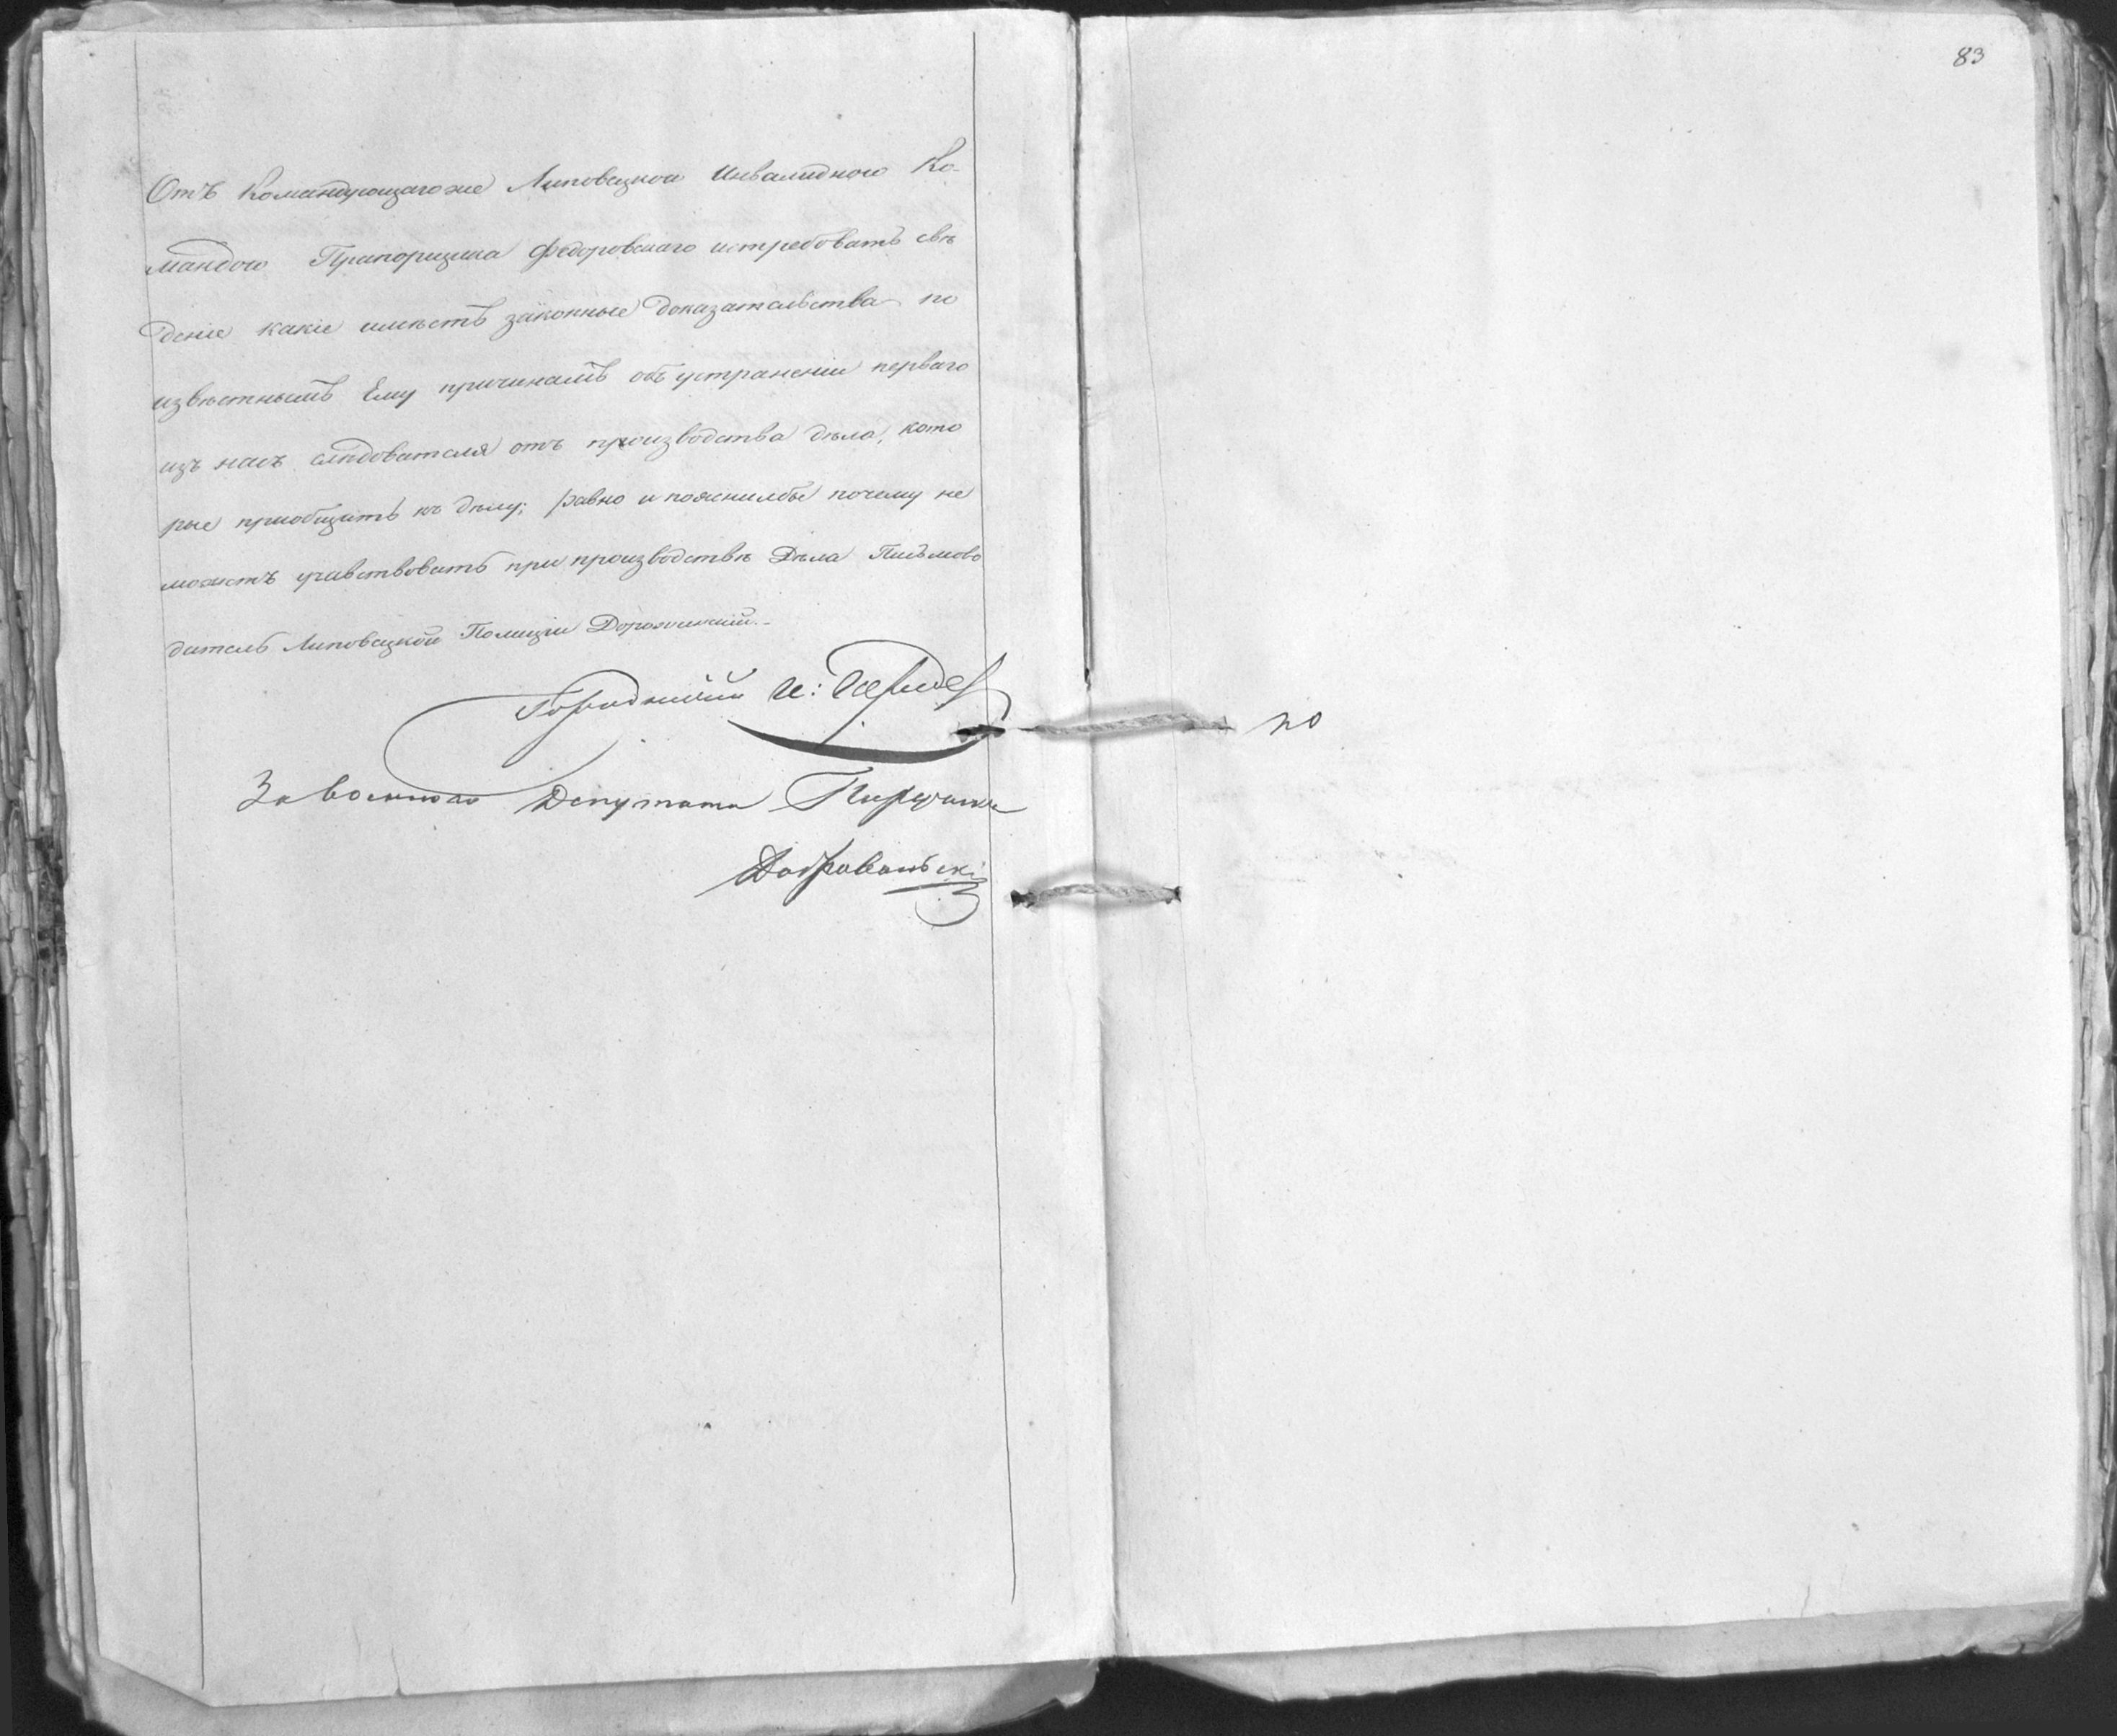 Отъ Командующагоже Липовецкою Инвалидною Ко-
мандою Прапорщика Федоровскаго истребовать свѣ
деніе какіе имѣетъ законные доказательства по
извѣстнымъ Ему причинамъ объ устраненіи перваго
изъ насъ слѣдователя отъ производства дѣла, кото
рые приобщить къ дѣлу; равно и пояснилбы почему не
можетъ участвовать при производствѣ Дѣла Письмово
дитель Липовецкой Полиціи Дорожинскій.-
Городничій И:
За военнаго Депутата Поручикъ
Добровольскій
83
по